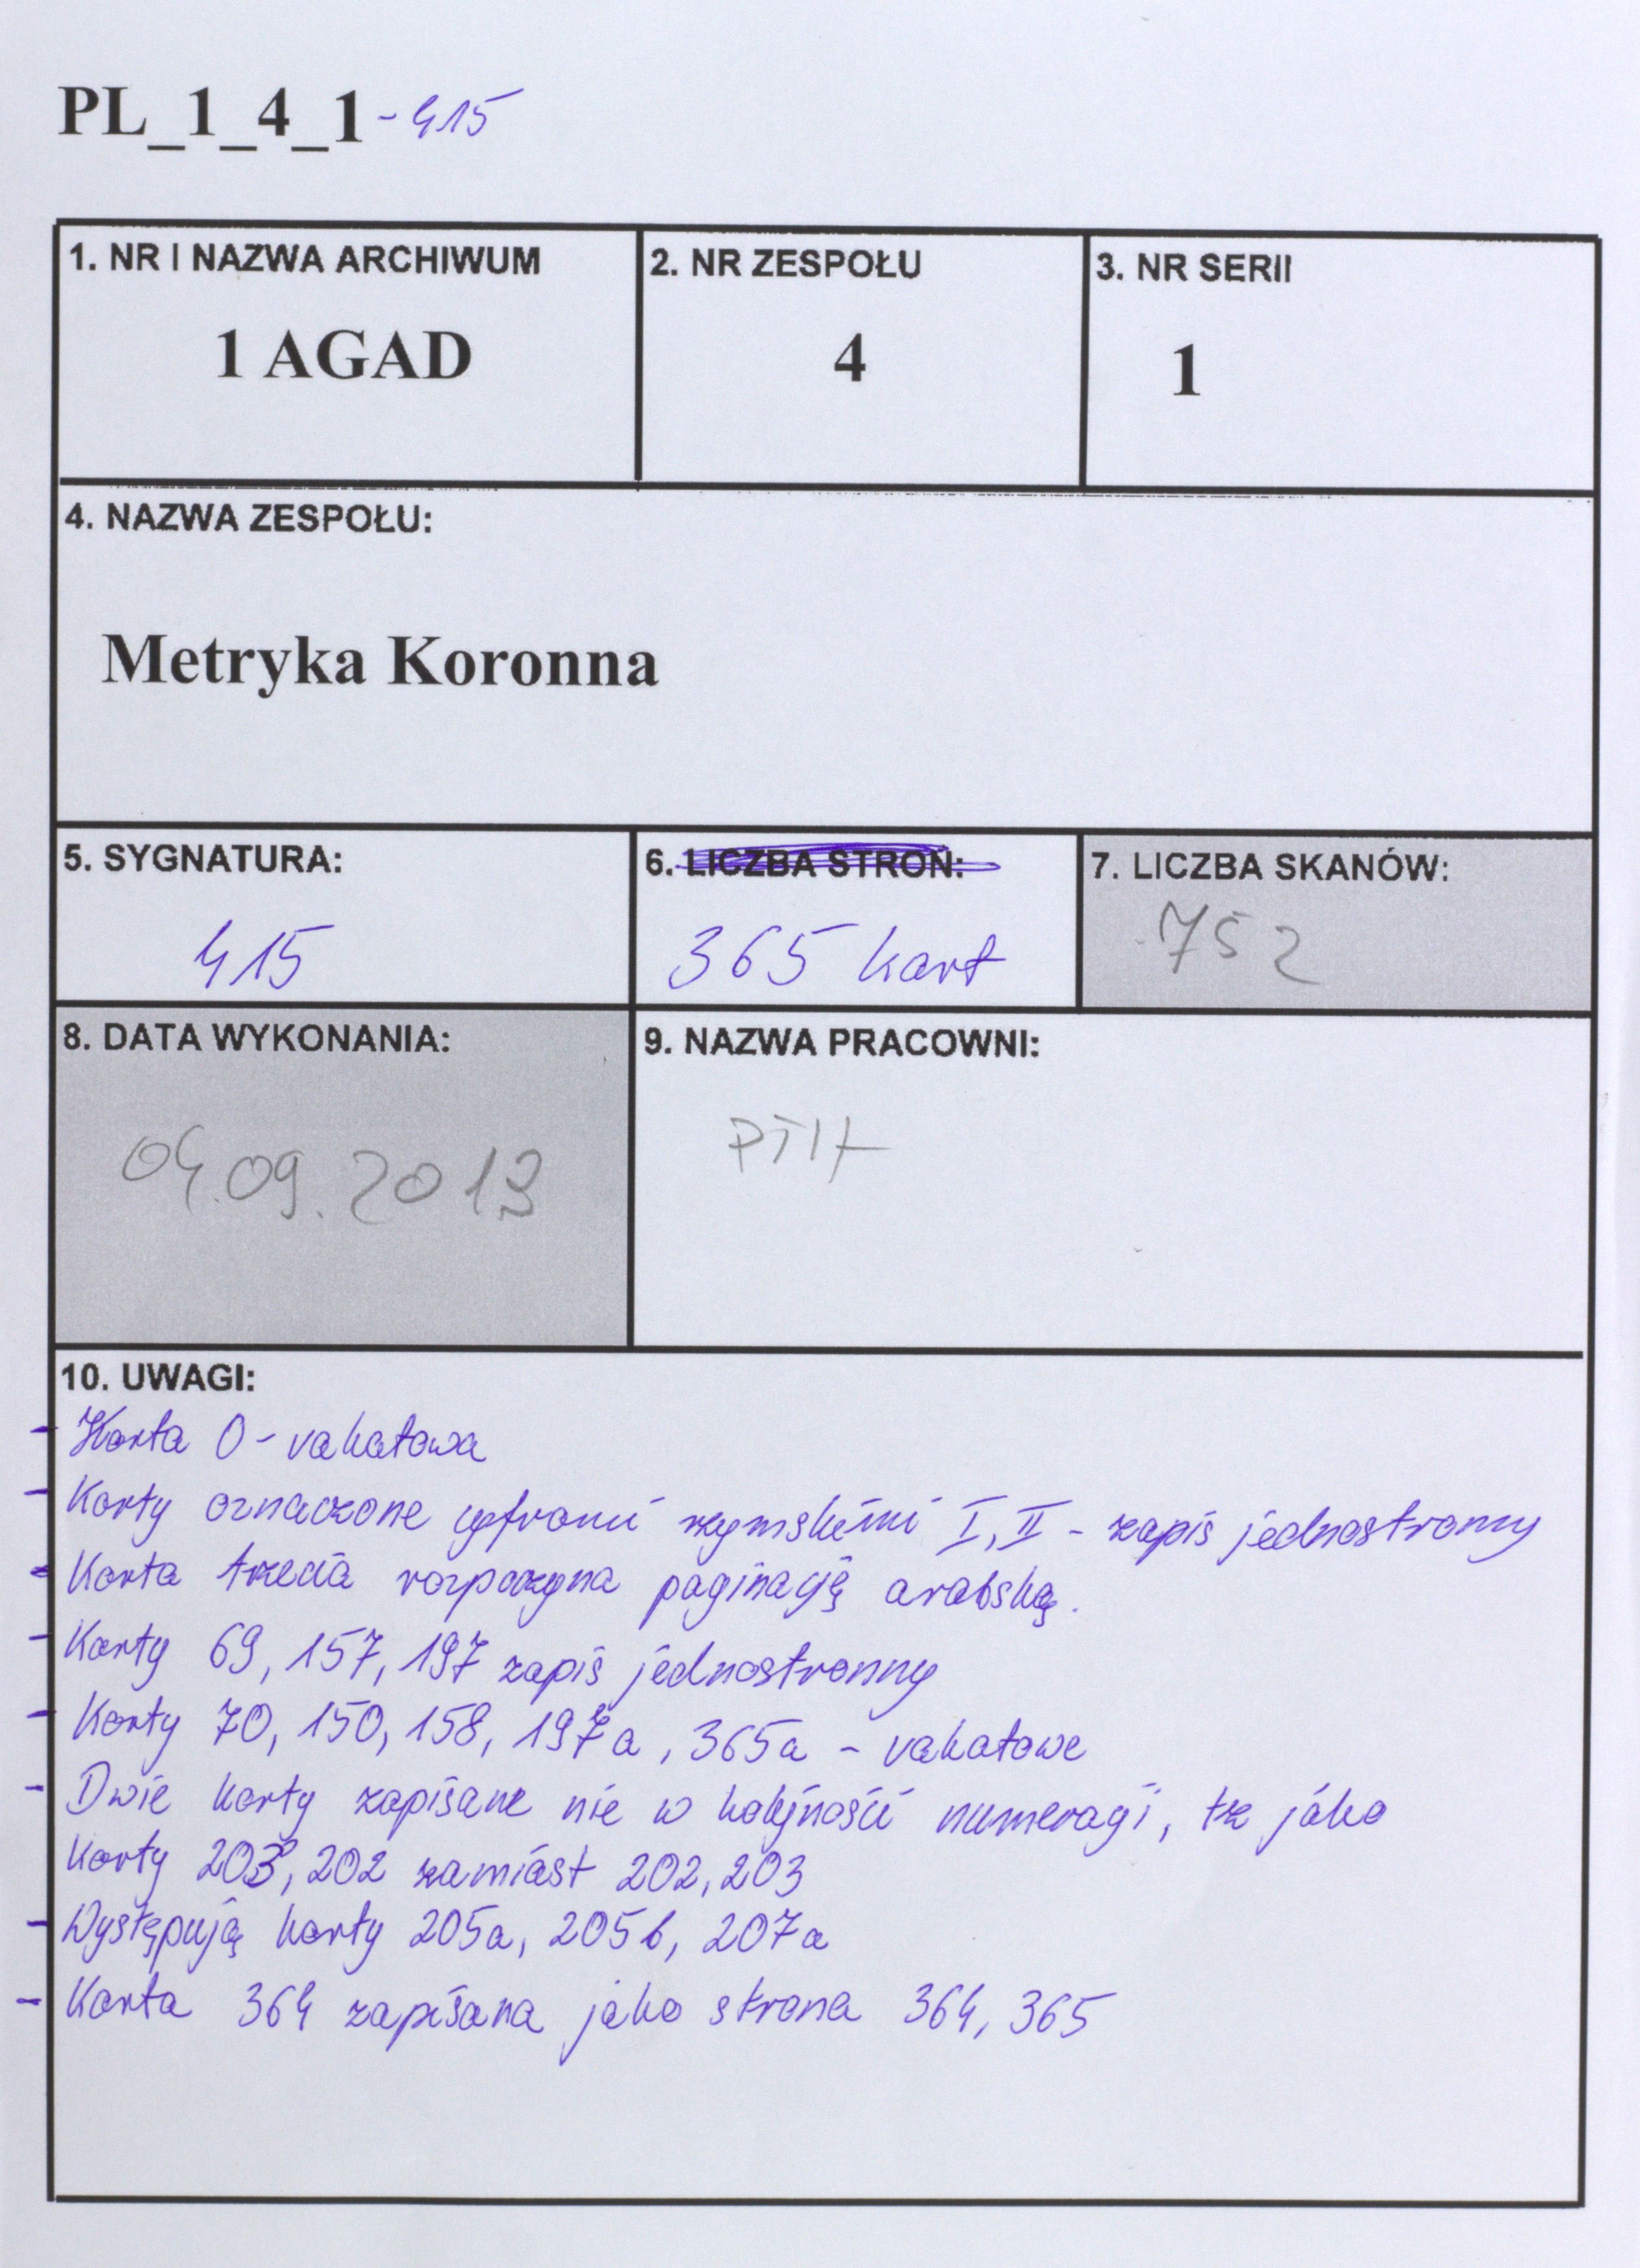 PL_1_4_1-415
1. NR I NAZWA ARCHIWUM
1 AGAD
2. NR ZESPOŁU
4
3. NR SERII
1
4. NAZWA ZESPOŁU:
Metryka Koronna
5. SYGNATURA:
415
6. LICZBA STRON:
365 kart
7. LICZBA SKANÓW:
752
8. DATA WYKONANIA:
04.09.2013
9. NAZWA PRACOWNI:
10. UWAGI:
- Karta 0 - vakatowa
- Karty oznaczone cyframi rzymskimi I, II - zapis jednostronny
- Karta trzecia rozpoczyna paginację arabską.
- Karty 69, 157, 197 zapis jednostronny
- Karty 70, 150, 158, 197a, 365a - vakatowe
- Dwie karty zapisane nie w kolejności numeracji, tz jako
karty 203, 202 zamiast 202, 203
- Występują karty 205a, 205b, 207a
- Karta 364 zapisana jako strona 364, 365